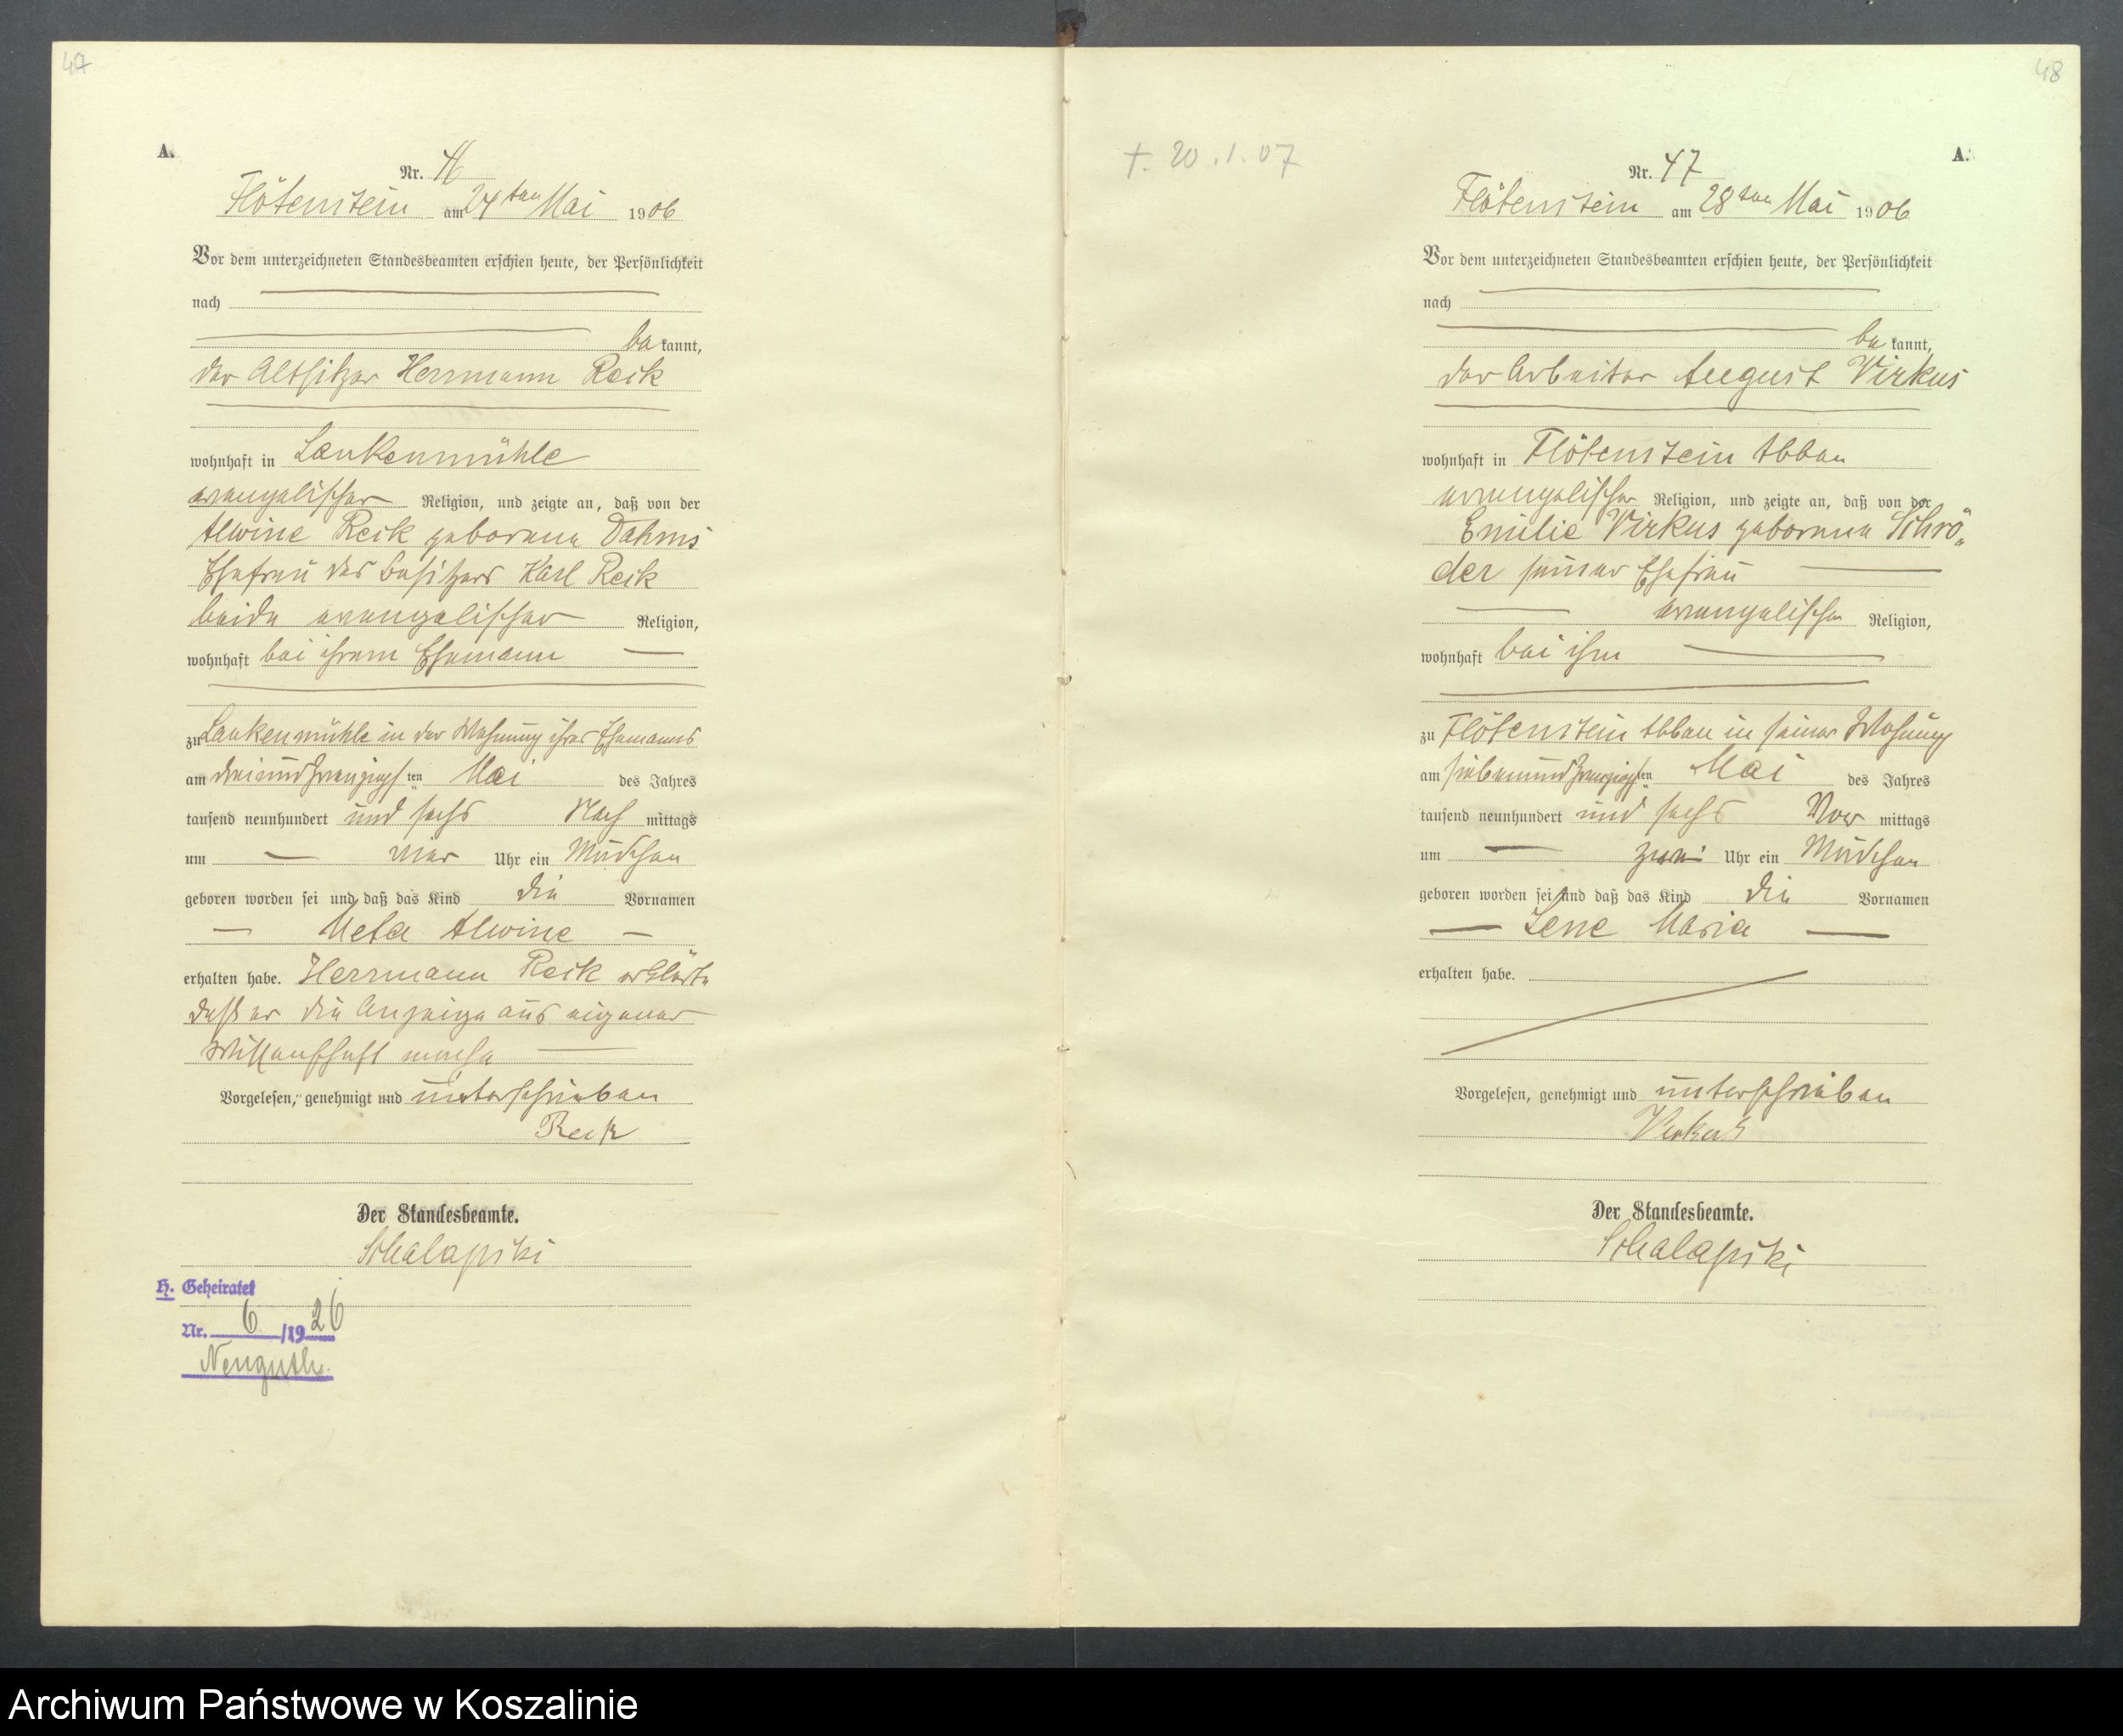 47
A.
Nr.
Flötenstein am 24ten Mai 1906
Vor dem unterzeichneten Standesbeamten erschien heute, der Persönlichkeit
nach
bekannt,
der Altsitzer Herrmann Reik
wohnhaft in Lankenmühle
evangelischer Religion, und zeigte an, daß von der
Alwine Reik geborene Dahms
Ehefrau des Besitzers Karl Reik
beide evangelischer Religion,
wohnhaft bei ihrem Ehemann
zu Lankenmühle in der Wohnung ihres Ehemanns
am dreiundzwanzigsten Mai des Jahres
tausend neunhundert und sechs Nachmittags
um vier Uhr ein Mädchen
geboren worden sei und daß das Kind die Vornamen
Meta Alwine
erhalten habe. Herrmann Reik erklärte
daß er die Anzeige aus eigener
Wissenschaft mache
Vorgelesen, genehmigt und unterschrieben
Reik
Der Standesbeamte.
Schalapski
H. Geheiratet
Nr. 6 /1926
Neuguth
48
† 20.1.07
A.
Nr. 47
Flötenstein am 28ten Mai 1906
Vor dem unterzeichneten Standesbeamten erschien heute, der Persönlichkeit
nach
bekannt,
der Arbeiter August Virkus
wohnhaft in Flötenstein Abbau
evangelischer Religion, und zeigte an, daß von der
Emilie Virkus geborene Schrö„
der seiner Ehefrau
evangelischer Religion,
wohnhaft bei ihm
zu Flötenstein Abbau in seiner Wohnung
am siebenundzwanzigsten Mai des Jahres
tausend neunhundert und sechs Vormittags
um zwei Uhr ein Mädchen
geboren worden sei und daß das Kind die Vornamen
Lene Maria
erhalten habe.
Vorgelesen, genehmigt und unterschrieben
Virkus
Der Standesbeamte.
Schalapski
Archiwum Państwowe w Koszalinie